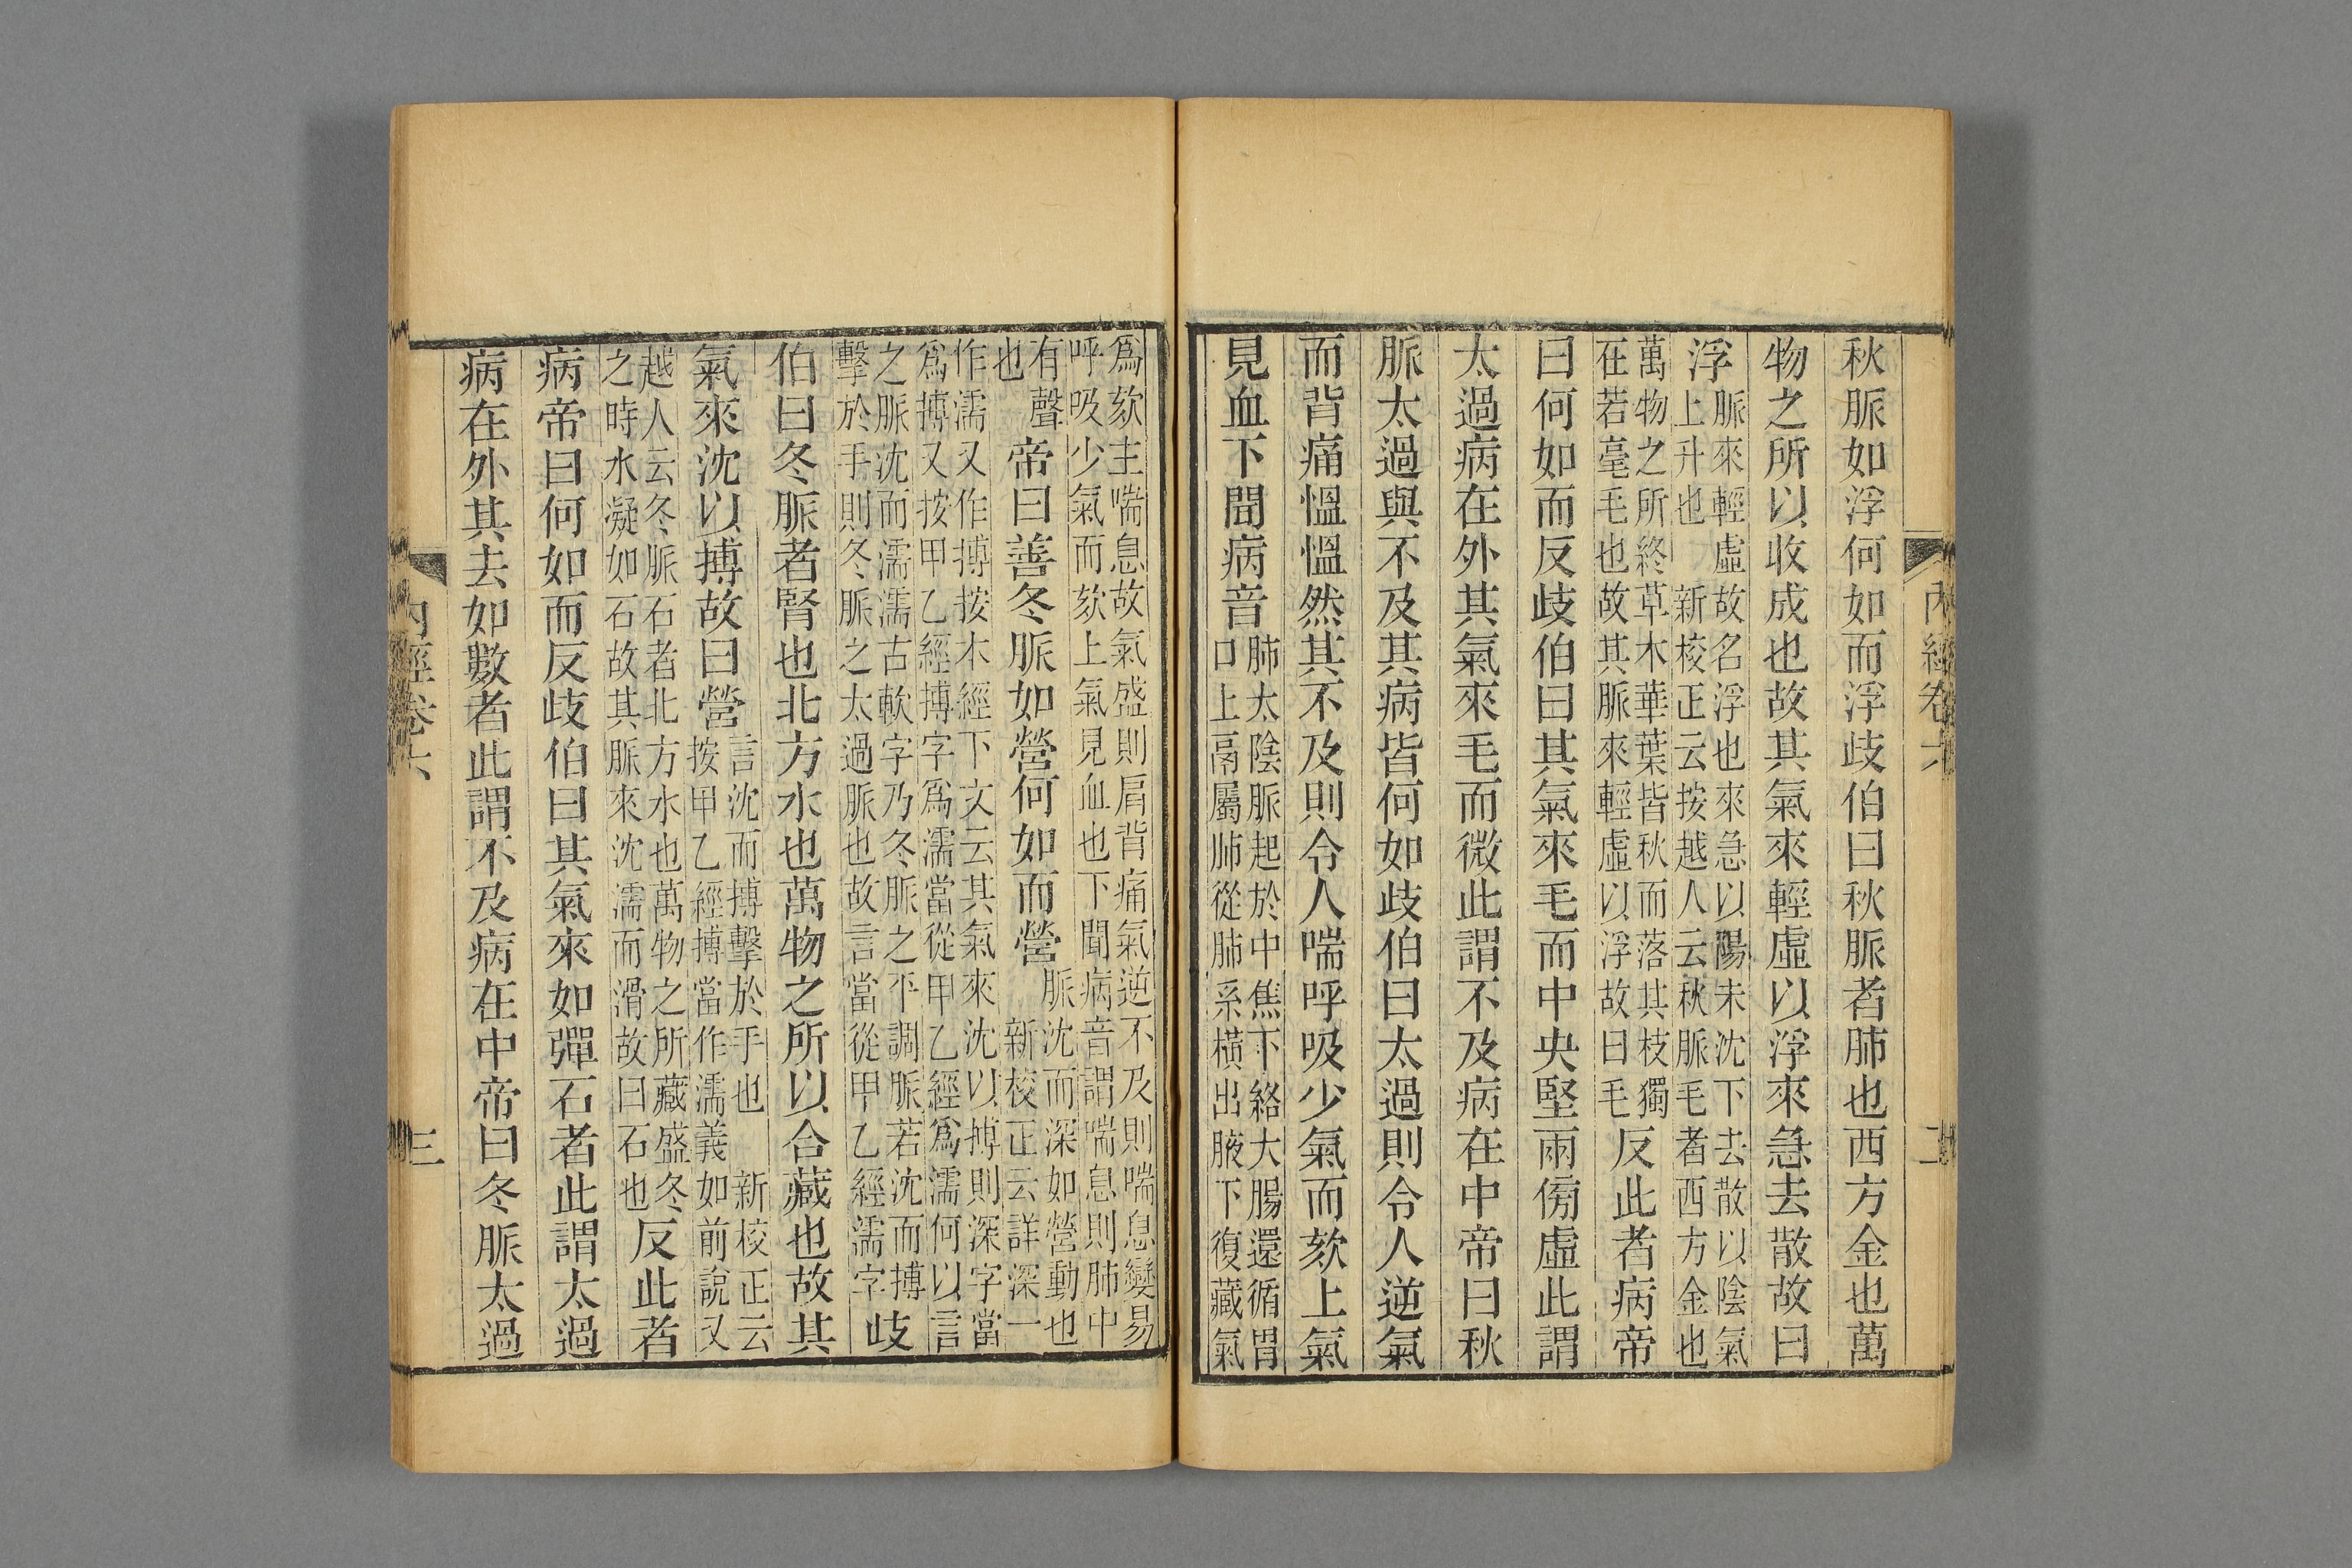 秋脈如浮何如而浮歧伯曰秋脈者肺也西方金也萬
物之所以收成也故其氣來輕虛以浮來急去散故曰
浮脈來輕虛故名浮也來急以陽未沈下去散以陰氣上升也 新校正云按越人云秋脈毛者西方金也
萬物之所終草木華葉皆秋而落其枝獨在若毫毛也故其脈來輕虛以浮故曰毛反此者病帝
曰何如而反歧伯曰其氣來毛而中央堅兩傍虛此謂
太過病在外其氣來毛而微此謂不及病在中帝曰秋
脈太過與不及其病皆何如歧伯曰太過則令人逆氣
而背痛慍慍然其不及則令人喘呼吸少氣而欬上氣
見血下聞病音肺太陰脈起於中焦下絡大腸還循胃口上鬲屬肺從肺系橫出腋下復藏氣
內經卷六 二
爲欬主喘息故氣盛則肩背痛氣逆不及則喘息變易呼吸少氣而欬上氣見血也下聞病音謂喘息則肺中
有聲也帝曰善冬脈如營何如而營脈沈而深如營動也 新校正云詳深一
作濡又作搏按本經下文云其氣來沈以搏則深字當爲搏又按甲乙經搏字爲濡當從甲乙經爲濡何以言
之脈沈而濡濡古軟字乃冬脈之平調脈若沈而搏擊於手則冬脈之太過脈也故言當從甲乙經濡字歧
伯曰冬脈者腎也北方水也萬物之所以合藏也故其
氣來沈以搏故曰營言沈而搏擊於手也 新校正云按甲乙經搏當作濡義如前說又
越人云冬脈石者北方水也萬物之所藏盛冬之時水凝如石故其脈來沈濡而滑故曰石也反此者
病帝曰何如而反歧伯曰其氣來如彈石者此謂太過
病在外其去如數者此謂不及病在中帝曰冬脈太過
內經卷六 三